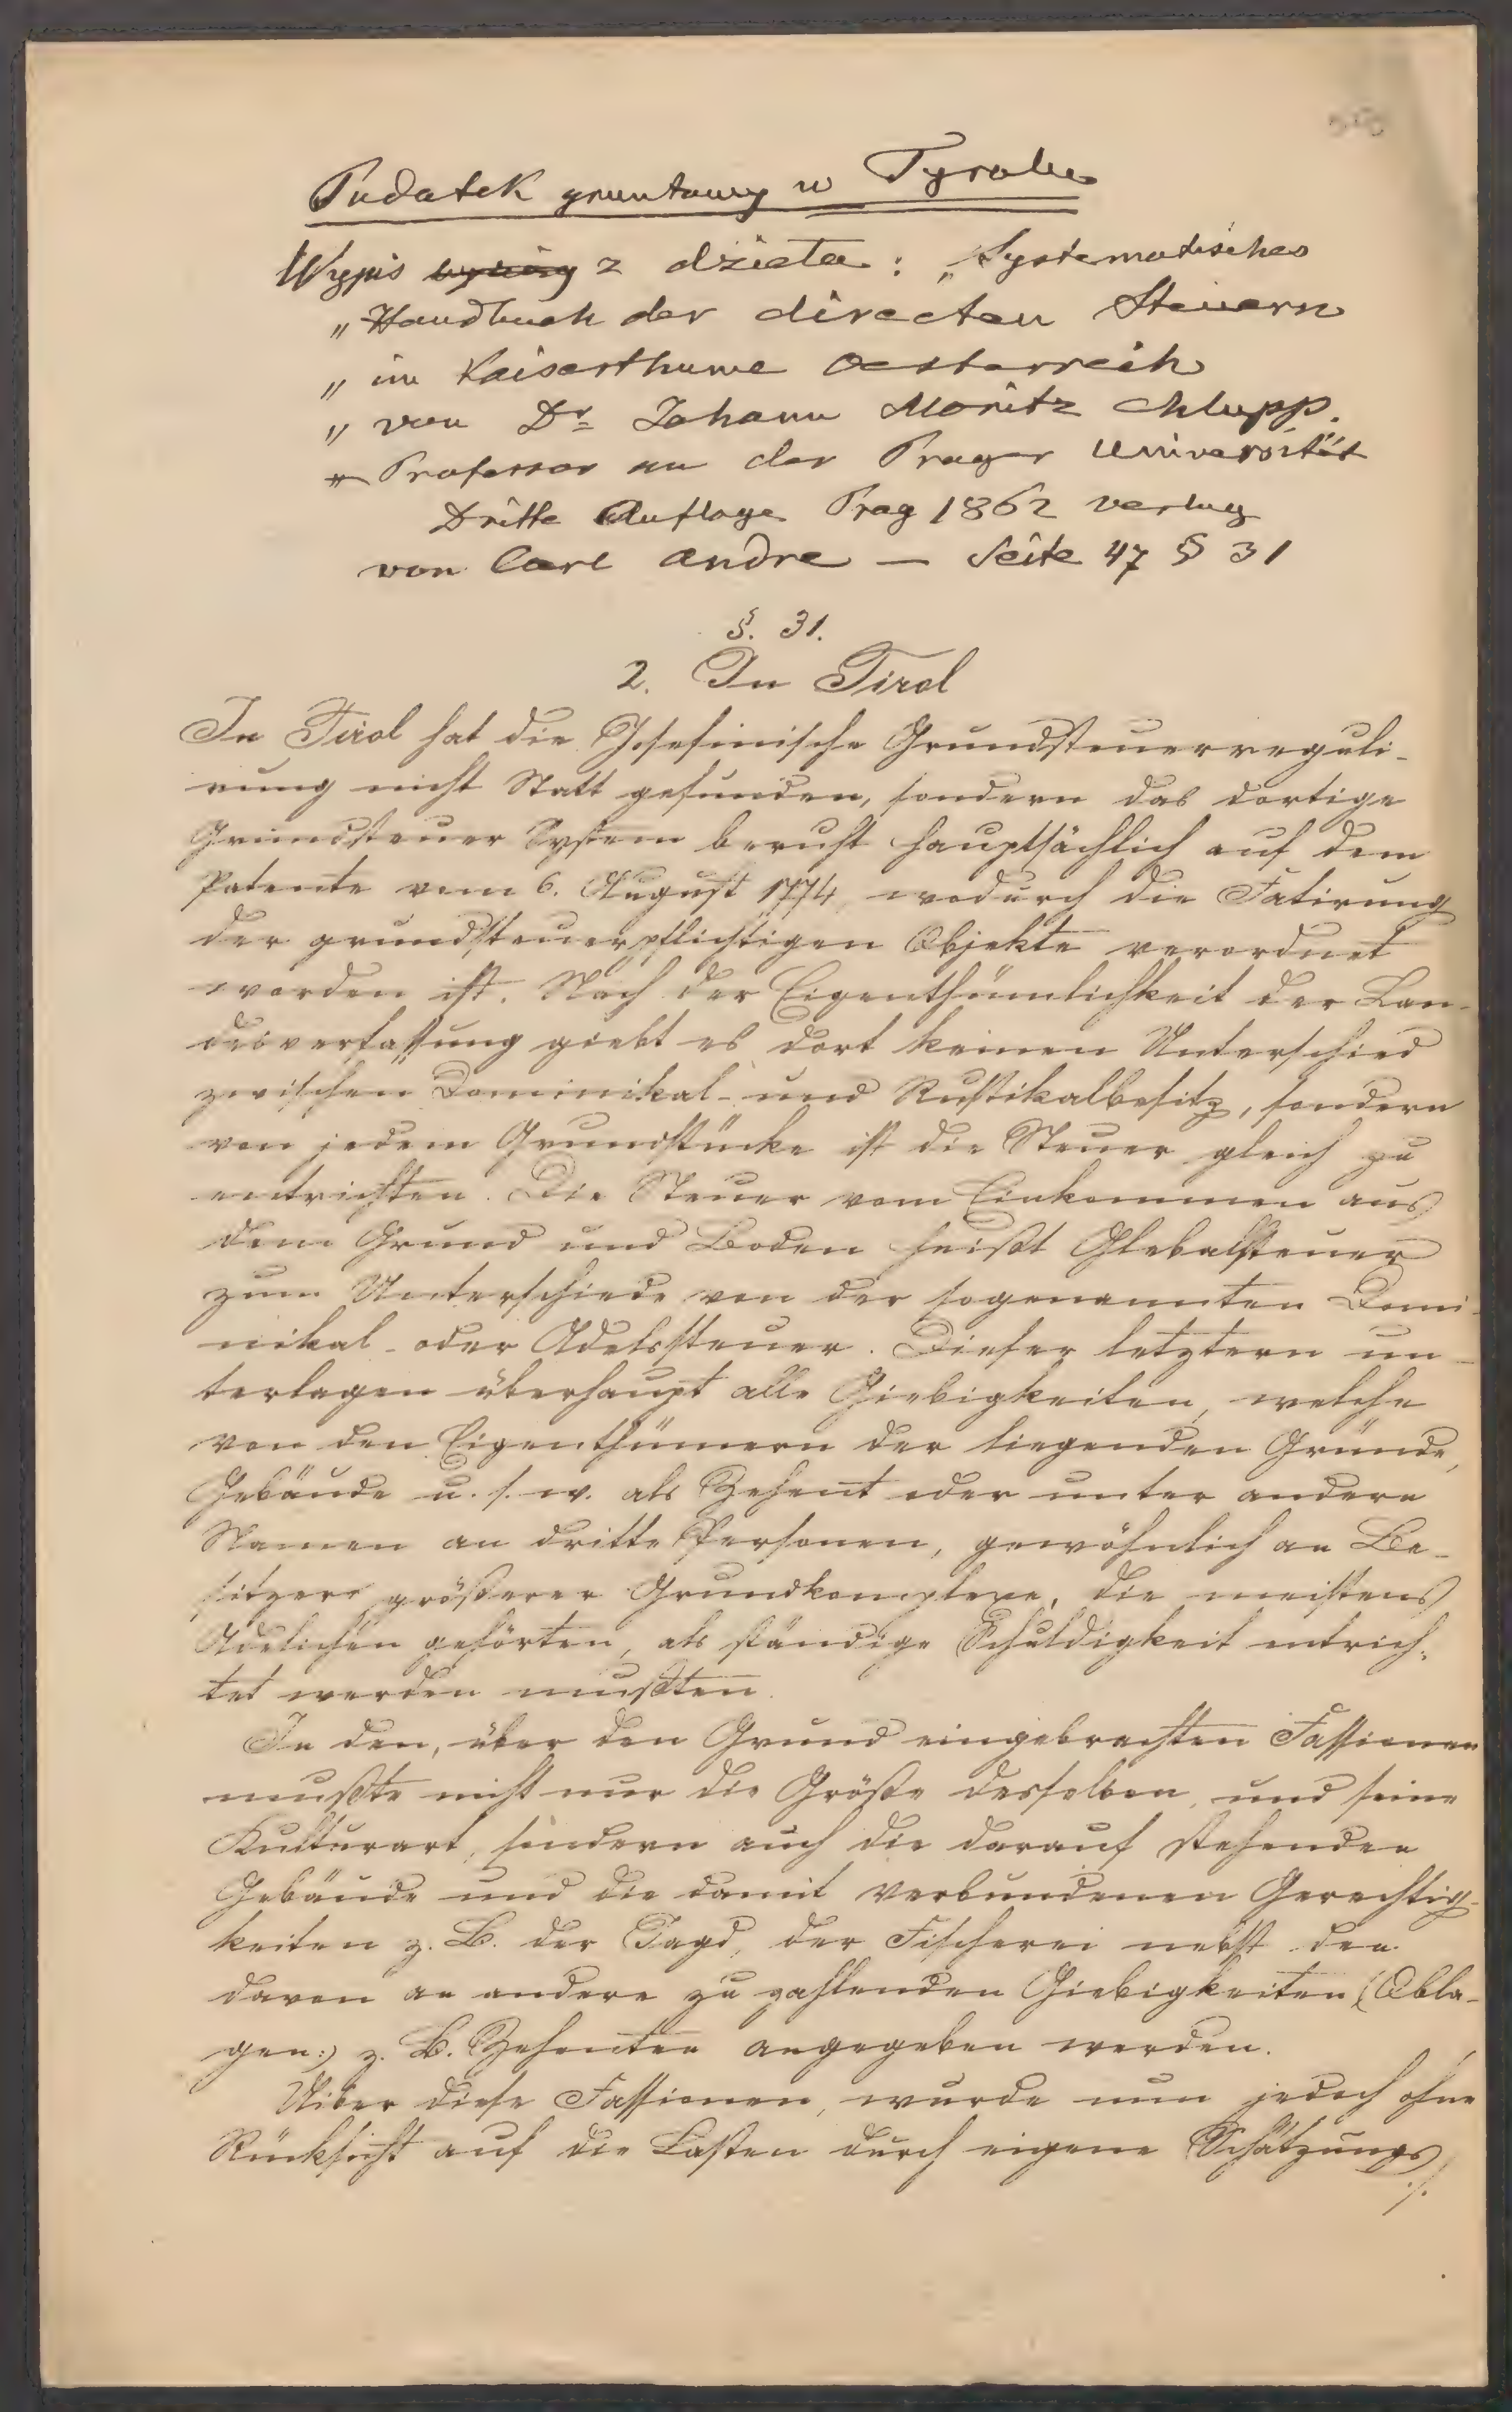 Podatek gruntowy w Tyrolu
Wypis z dzieła: „Systematisches
„ Handbuch der directen Steuern
„ im Kaiserthume Oesterreich
„ von Dr Johann Moritz Chlupp.
„ Professor an der Prager Universität
Dritte Auflage Prag 1862 Verlag
von Carl Andre — Seite 47 § 31
§. 31.
2. In Tirol
In Tirol hat die Josefinische Grundsteuerreguli-
rung nicht Statt gefunden, sondern das dortige
Grundsteuer System beruht hauptsächlich auf dem
Patente vom 6. August 1774, wodurch die Fatirung
der grundsteuerpflichtigen Objekte verordnet
worden ist. Nach der Eigenthümlichkeit der Lan-
desverfassung giebt es dort keinen Unterschied
zwischen Dominikal- und Rustikalbesitz, sondern
von jedem Grundstücke ist die Steuer gleich zu
entrichten. Die Steuer vom Einkommen aus
dem Grund und Boden heißt Glebalsteuer
zum Unterschiede von der sogenannten Domi-
nikal- oder Adelssteuer. Dieser letztern un-
terlagen überhaupt alle Giebigkeiten, welche
von den Eigenthümern der liegenden Gründe,
Gebäude u. s. w. als Zehent oder unter andere
Namen an dritte Personen, gewöhnlich an Be-
sitzer größerer Grundkomplexe, die meistens
Adelichen gehörten, als ständige Schuldigkeit entrich-
tet werden mußten.
In den, über den Grund eingebrachten Fassionen
mußte nicht nur die Größe desselben, und seine
Kulturart, sondern auch die darauf stehenden
Gebäude und die damit verbundenen Gerechtig-
keiten z. B. der Jagd, der Fischerei nebst den
davon an andere zu zahlenden Giebigkeiten (Obla-
gen:) z. B. Zehenten angegeben werden.
Uiber diese Fassionen, wurde nun jedoch ohne
Rücksicht auf die Lasten durch eigene Schätzungs
./.